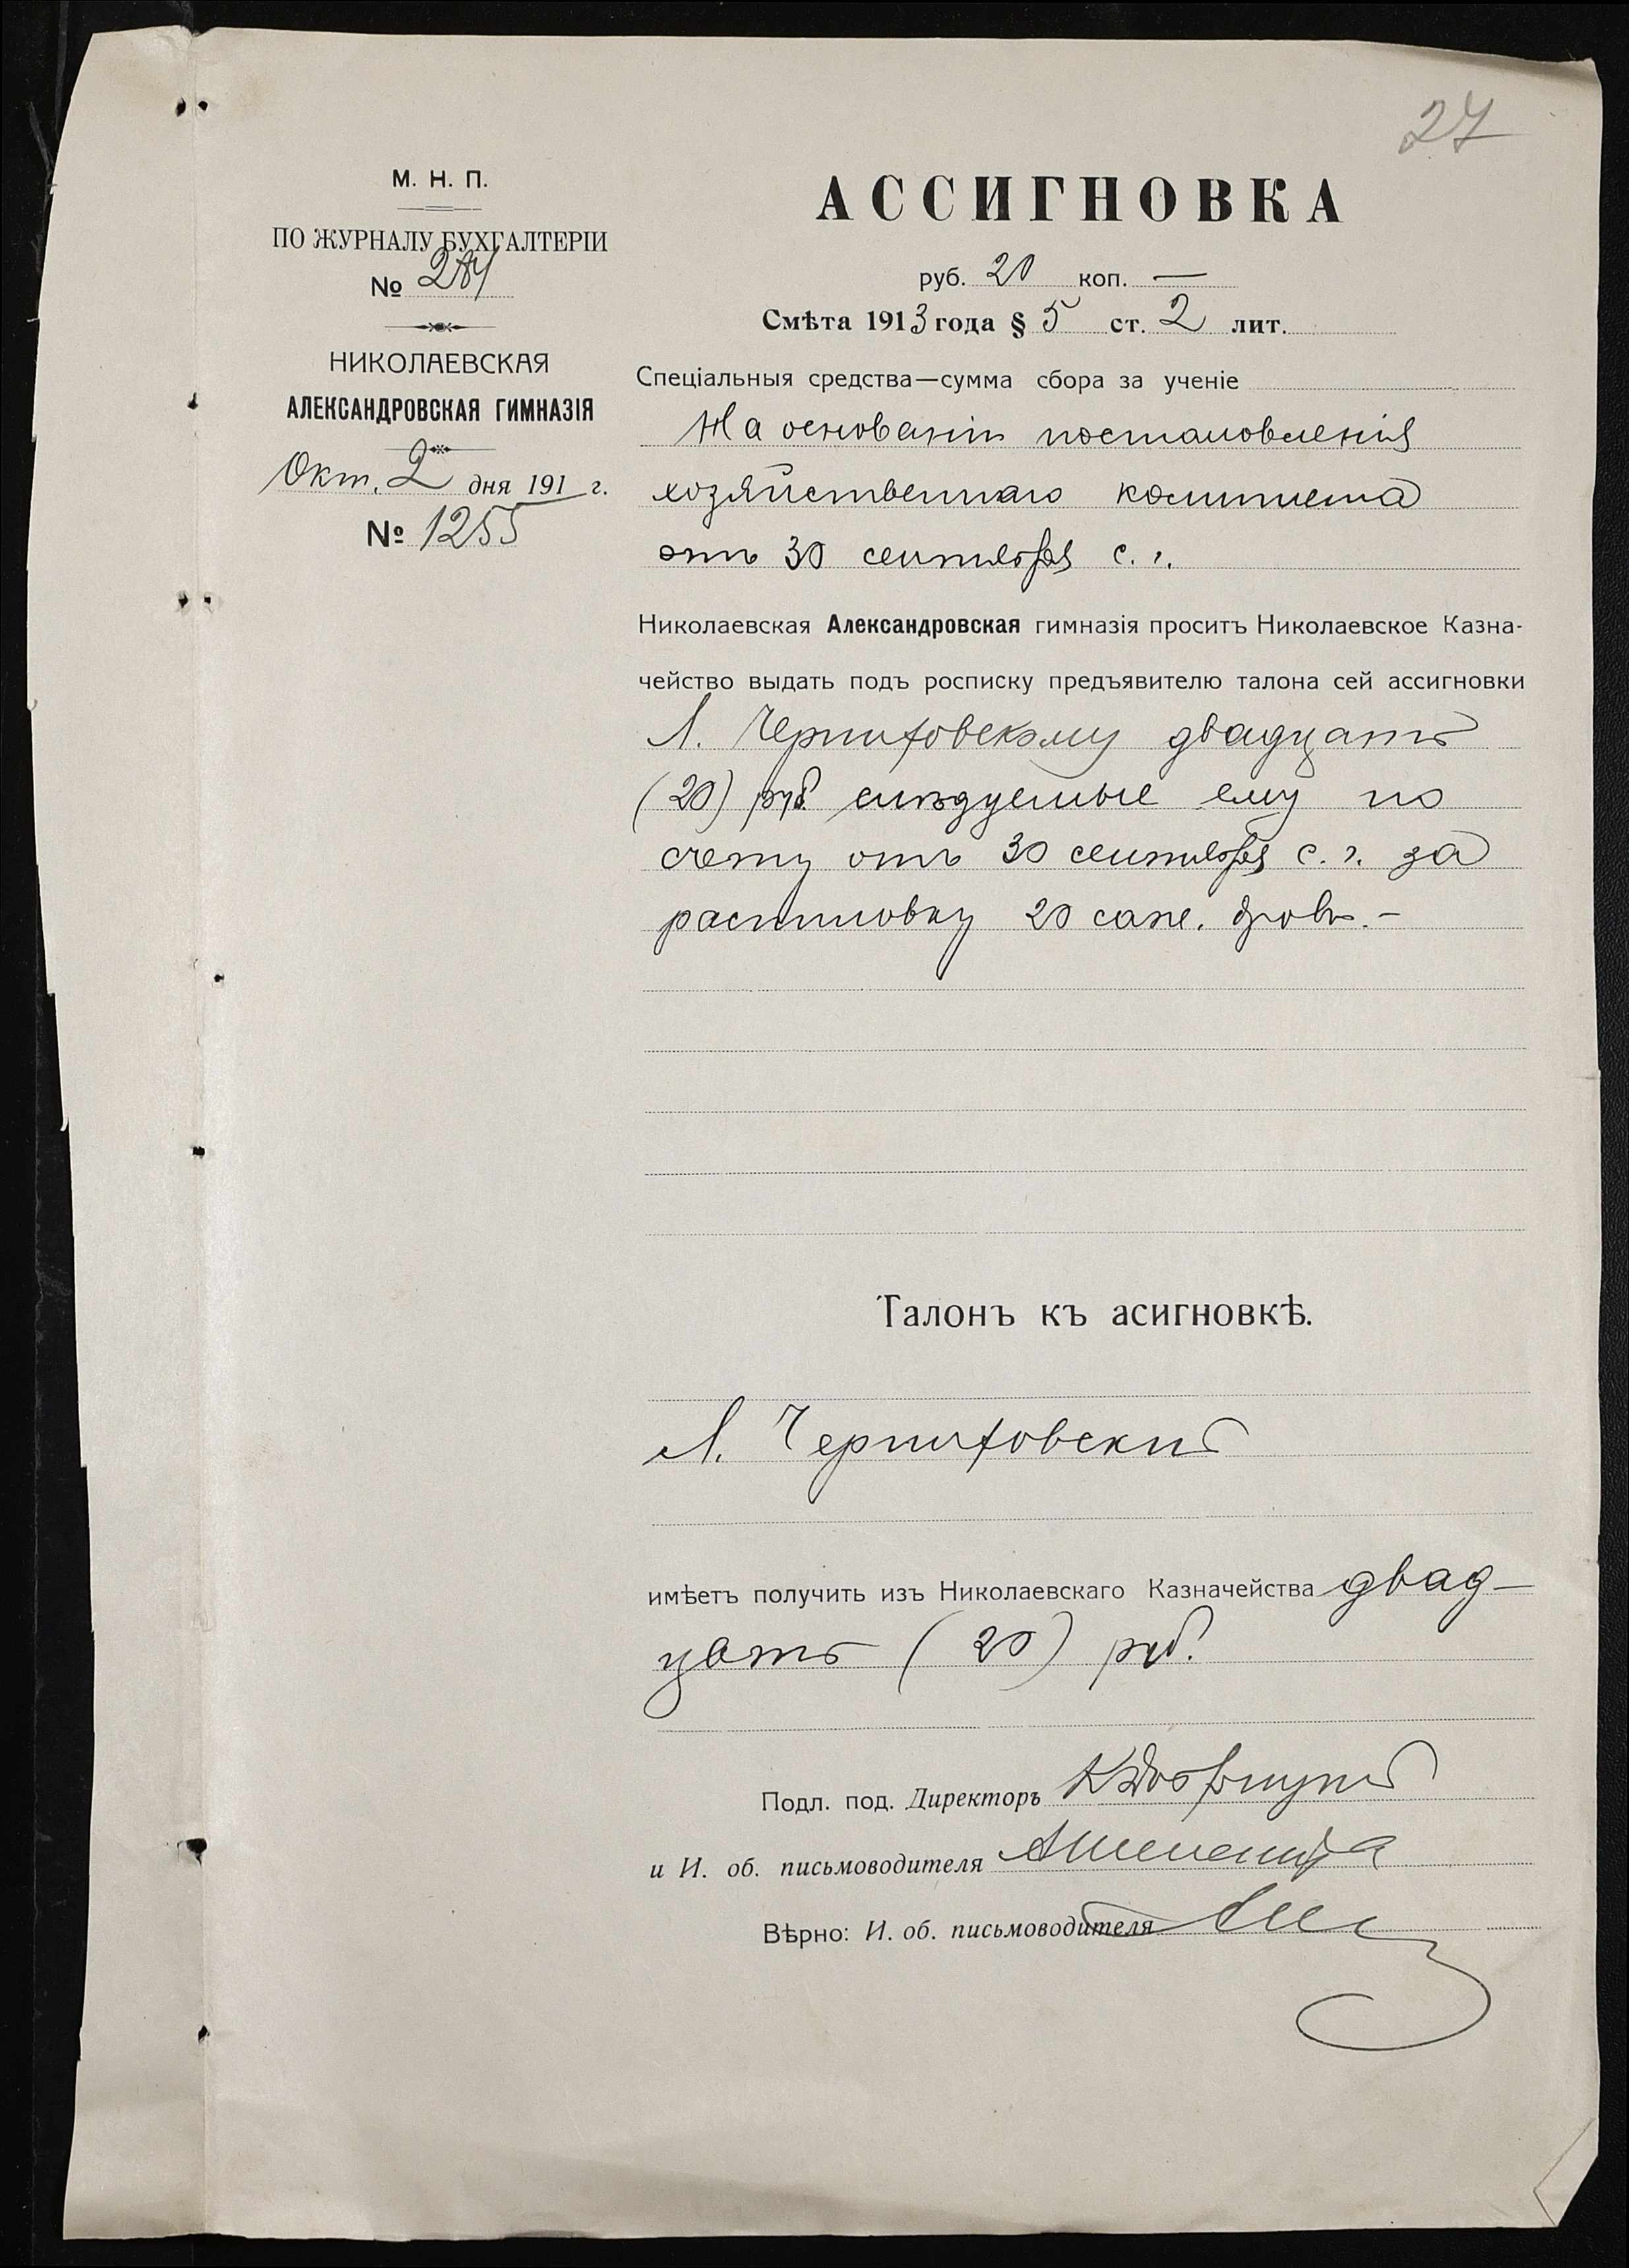 27
М. Н. П.
ПО ЖУРНАЛУ БУХГАЛТЕРІИ
№
НИКОЛАЕВСКАЯ
АЛЕКСАНДРОВСКАЯ ГИМНАЗІЯ
Окт. 2 дня 191 г.
№ 1255
АССИГНОВКА
руб. 20 коп. —
Смѣта 1913 года § 5 ст. 2 лит.
Спеціальныя средства—сумма сбора за ученіе
На основаніи постановленія
хозяйственнаго комитета
отъ 30 сентября с. г.
Николаевская Александровская гимназія проситъ Николаевское Казна-
чейство выдать подъ росписку предъявителю талона сей ассигновки
Л. Черниховскому двадцать
(20) руб. слѣдуемые ему по
счету отъ 30 сентября с. г. за
распиловку 20 саж. дровъ. –
Талонъ къ асигновкѣ.
Л. Черниховскій
имѣетъ получить изъ Николаевскаго Казначейства двад–
цать (20) руб.
Подл. под. Директоръ
и И. об. письмоводителя
Вѣрно: И. об. письмоводителя